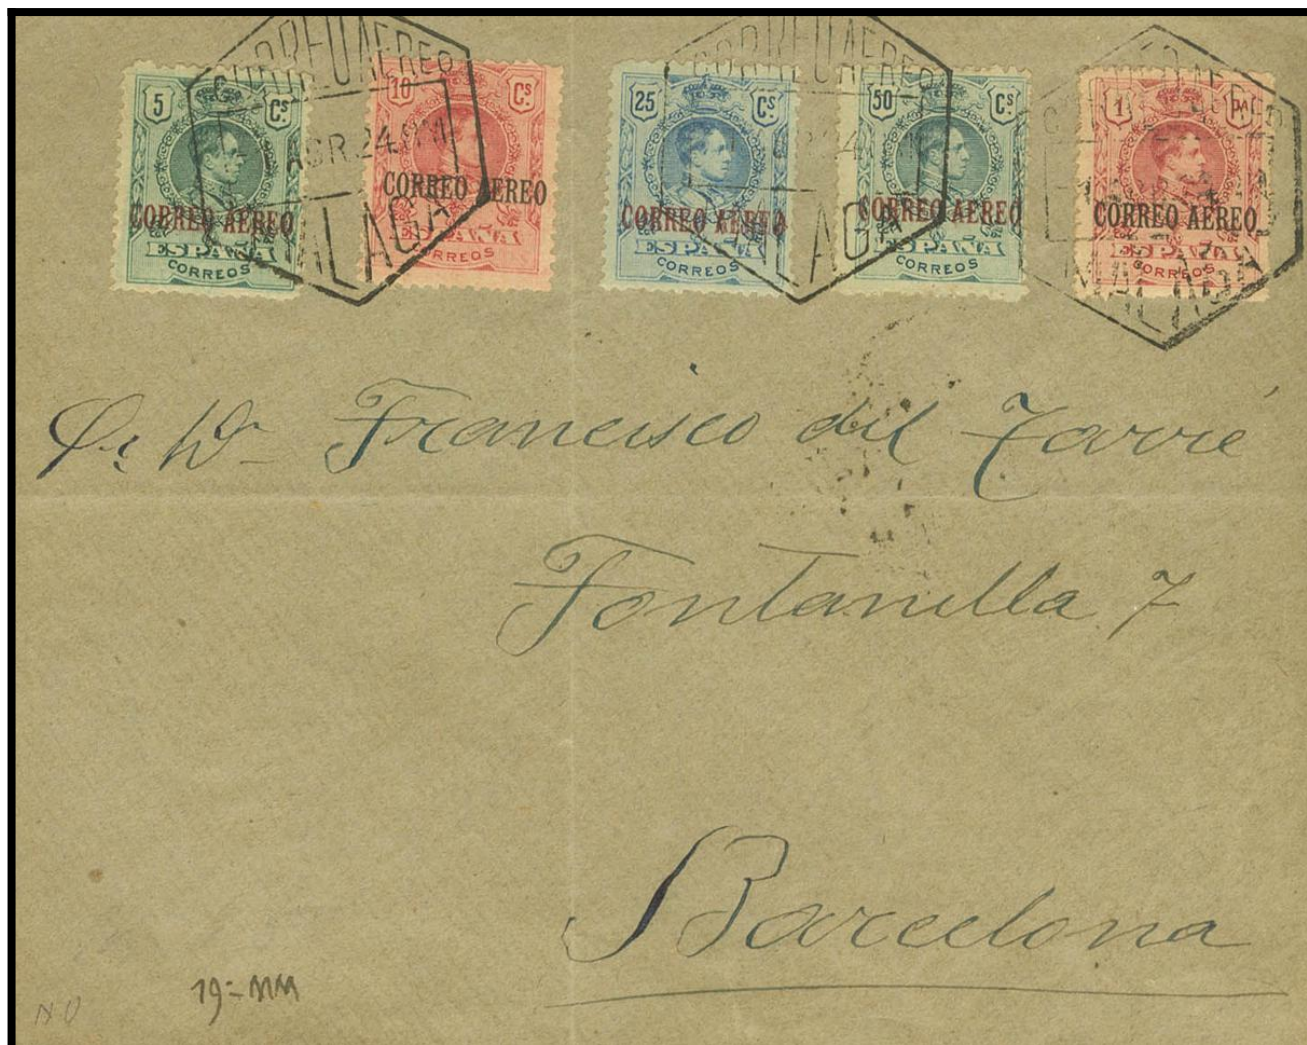 CORREO AEREO
ABR. 24
MALAGA
5 Cs
CORREO AEREO
ESPAÑA
CORREOS
10 Cs
CORREO AEREO
ESPAÑA
CORREOS
CORREO AEREO
MALAGA
25 Cs
CORREO AEREO
ESPAÑA
CORREOS
50 Cs
CORREO AEREO
ESPAÑA
CORREOS
MALAGA
1
CORREO AEREO
ESPAÑA
CORREOS
Francisco del Tarré
Fontanella 7
Barcelona